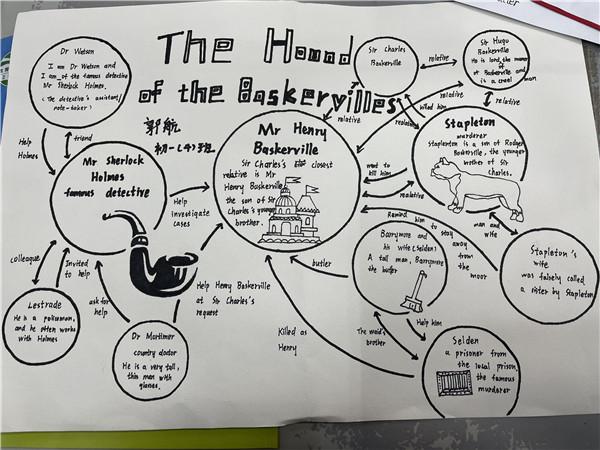 The Hound
of the Baskervilles
郭航
初一(4)班
Dr Watson
I am Dr Watson and
I am of the famous detective
Mr Sherlock Holmes.
(The detective's assistant/
note-taker)
Help
Holmes
friend
Mr Sherlock
Holmes
famous detective
Help
investigate
cases
colleague
Invited
to help
Lestrade
He is a policeman,
and he often works
with Holmes
ask for
help
Dr Mortimer
country doctor
He is a very tall,
thin man with
glasses.
Help Henry Baskerville
at Sir Charles's
request
Mr Henry
Baskerville
Sir Charles's closest
relative is Mr
Henry Baskerville
the son of Sir
Charles's younger
brother.
Sir Charles
Baskerville
relative
Sir Hugo
Baskerville
He is lord the manor
of
of Baskerville and
is a cruel man
relative
relative
relative
killed him
Stapleton
murderer
Stapleton is a son of Rodger
Baskerville, the younger
brother of Sir
Charles.
want to
kill him
Remind him
to stay
away
from
the
moor
man and
wife
Stapleton's
wife
was falsely called
a sister by Stapleton
butler
Barrymore and
his wife (Selden)
A tall man, Barrymore
the butler
Help him
The maid's
brother
Killed as
Henry
Selden
a prisoner from
the local prison,
the famous
murderer